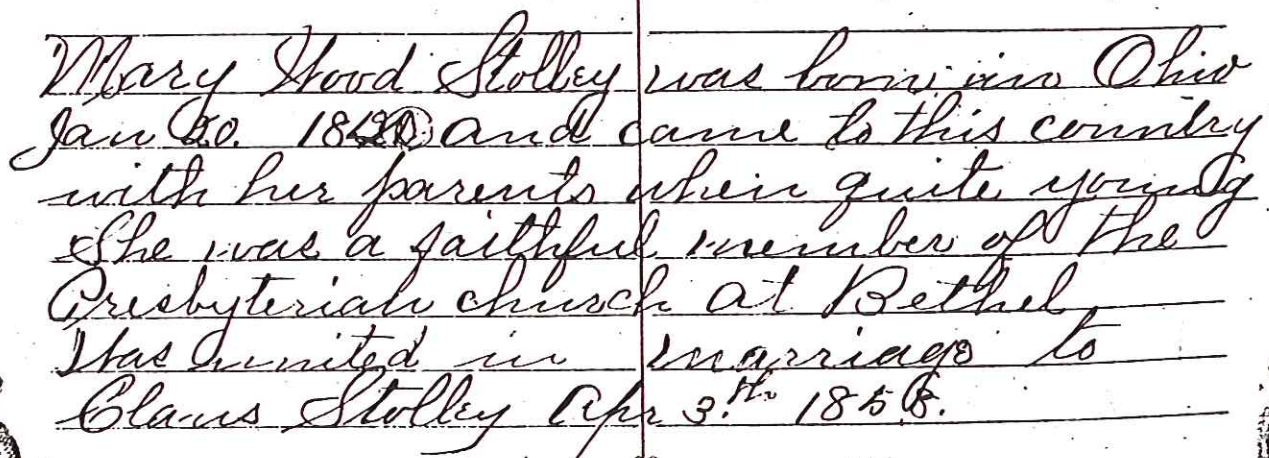 Mary Wood Stolley was born in Ohio
Jan 20. and came to this country
with her parents when quite young
She was a faithful member of the
Presbyterian church at Bethel
Was united in marriage to
Claus Stolley Apr 3.th 1858.